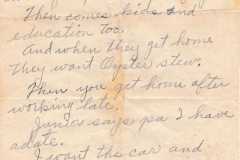 Then comes kids and
education too.
And when they get home
they want Oyster stew.
Then you get home after
working late.
Junior says pa I have
a date.
I want the car and